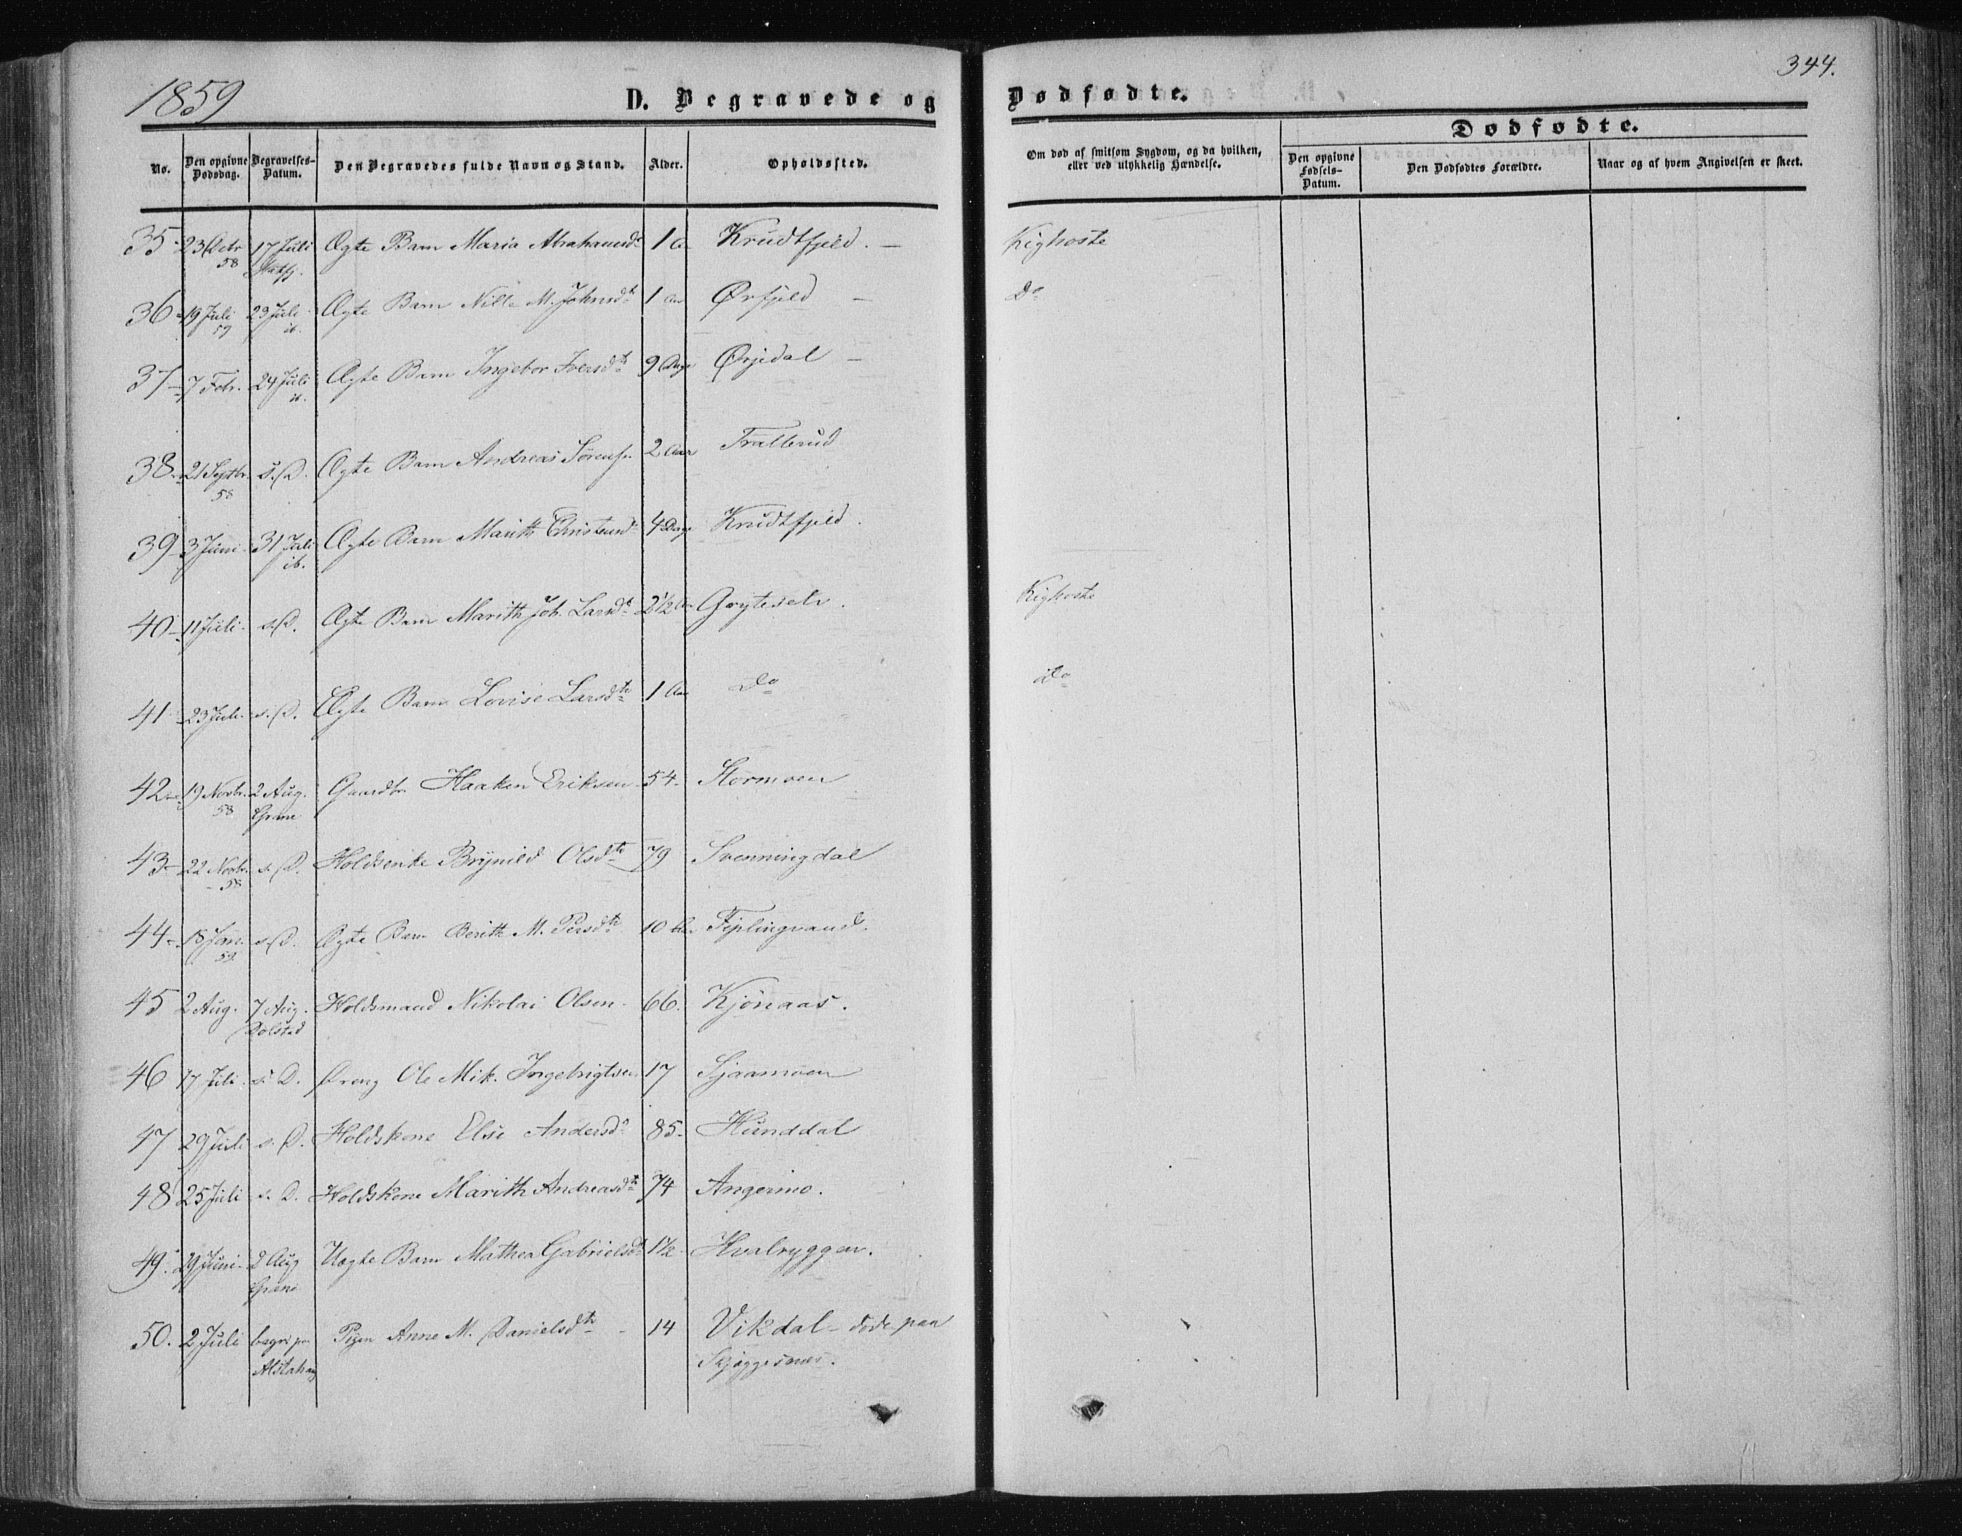 1859
D. Begravede og
Dødfødte.
344.
No.
Den opgivne Dødsdag.
Begravelses-Datum.
Den Begravedes fulde Navn og Stand.
Alder.
Opholdssted.
Om død af smitsom Sygdom, og da hvilken, eller ved ulykkelig Hændelse.
Dødfødte.
Den opgivne Fødsels-Datum.
Den Dødfødtes Forældre.
Naar og af hvem Angivelsen er skeet.
35 23 Octr 58 17 Juli Ægte Barn Maria Abrahamsd. 1 Krudtfjeld. Kighoste
36 19 Juli 59 23 Juli ib. Ægte Barn Nille M. Johnsdtr 1 Aar Ørfjeld Do
37 7 Febr. 24 Juli ib. Ægte Barn Ingebor Iversdtr 9 Dage Ørjedal
38 21 Septbr. 58 s. D. Ægte Barn Andreas Sørensen 2 Aar Trallerud
39 3 Juni 31 Juli ib. Ægte Barn Marith Christensd. 4 Dage Krudtfjeld.
40 11 Juli s. D. Ægte Barn Marith Joh. Larsdtr 2 1/2 Aar Gryteselv. Kighoste
41 23 Juli s. D. Ægte Barn Lovise Larsdtr 1 Aar Do Do
42 19 Novbr. 58 2 Aug. Grane Gaardbr. Haaken Eriksen 54 Stormoen
43 22 Novbr. 58 s. D. Holdsenke Brynild Olsdtr 79 Svenningdal
44 18 Jan. 59 s. D. Ægte Barn Berith M. Persdtr 10 Fiplingvand.
45 2 Aug. 7 Aug. Dolstad Holdsmand Nikolai Olsen 66. Kjønaas.
46 17 Juli s. D. Dreng Ole Mik. Ingebrigtsen 17 Sjaamoen
47 29 Juli s. D. Holdskone Else Andersd. 85 Hunddal
48 25 Juli s. D. Holdskone Marith Andreasdtr 74 Angermo.
49. 29 Juni 2 Aug Grane Uægte Barn Mathea Gabrielsd. 1 1/2 Hvalryggen.
50. 2 Juli begr. paa Alstahaug Pigen Anne M. Danielsdtr 14 Vikdal - døde paa Skjeggesnæs.